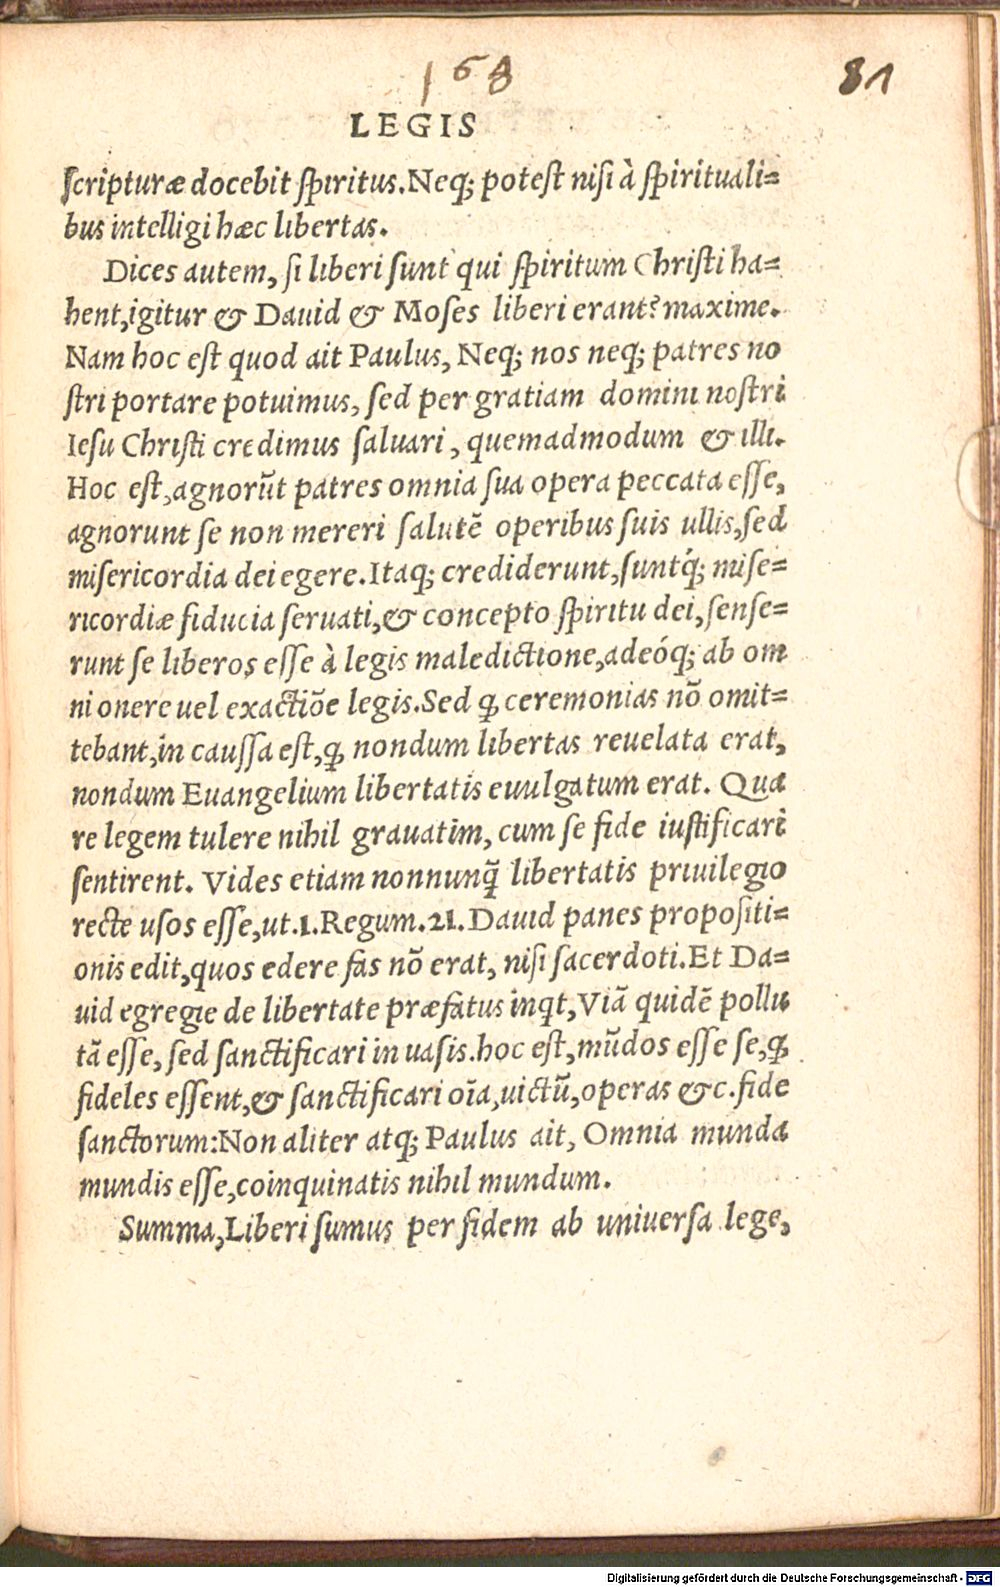 168
81
LEGIS
ſcripturæ docebit ſpiritus. Neq; poteſt niſi à ſpirituali=
bus intelligi hæc libertas.
Dices autem, ſi liberi ſunt qui ſpiritum Chriſti ha=
hent, igitur & Dauid & Moſes liberi erant? maxime.
Nam hoc eſt quod ait Paulus, Neq; nos neq; patres no
ſtri portare potuimus, ſed per gratiam domini noſtri
Ieſu Chriſti credimus ſaluari, quemadmodum & illi.
Hoc eſt, agnorūt patres omnia ſua opera peccata eſſe,
agnorunt ſe non mereri ſalutē operibus ſuis ullis, ſed
miſericordia dei egere. Itaq; crediderunt, ſuntq́; miſe=
ricordiæ fiducia ſeruati, & concepto ſpiritu dei, ſenſe=
runt ſe liberos eſſe à legis maledictione, adeóq; ab om
ni onere uel exactiōe legis. Sed ꝙ ceremonias nō omit=
tebant, in cauſſa eſt, ꝙ nondum libertas reuelata erat,
nondum Euangelium libertatis euulgatum erat. Qua
re legem tulere nihil grauatim, cum ſe fide iuſtificari
ſentirent. Vides etiam nonnunq̃ libertatis priuilegio
recte uſos eſſe, ut. 1. Regum. 21. Dauid panes propoſiti=
onis edit, quos edere fas nō erat, niſi ſacerdoti. Et Da=
uid egregie de libertate præfatus inqt, Viā quidē pollu
tā eſſe, ſed ſanctificari in uaſis. hoc eſt, mūdos eſſe ſe, ꝙ
fideles eſſent, & ſanctificari oīa, uictū, operas &c. fide
ſanctorum: Non aliter atq; Paulus ait, Omnia munda
mundis eſſe, coinquinatis nihil mundum.
Summa, Liberi ſumus per fidem ab uniuerſa lege,
Digitalisierung gefördert durch die Deutsche Forschungsgemeinschaft - DFG